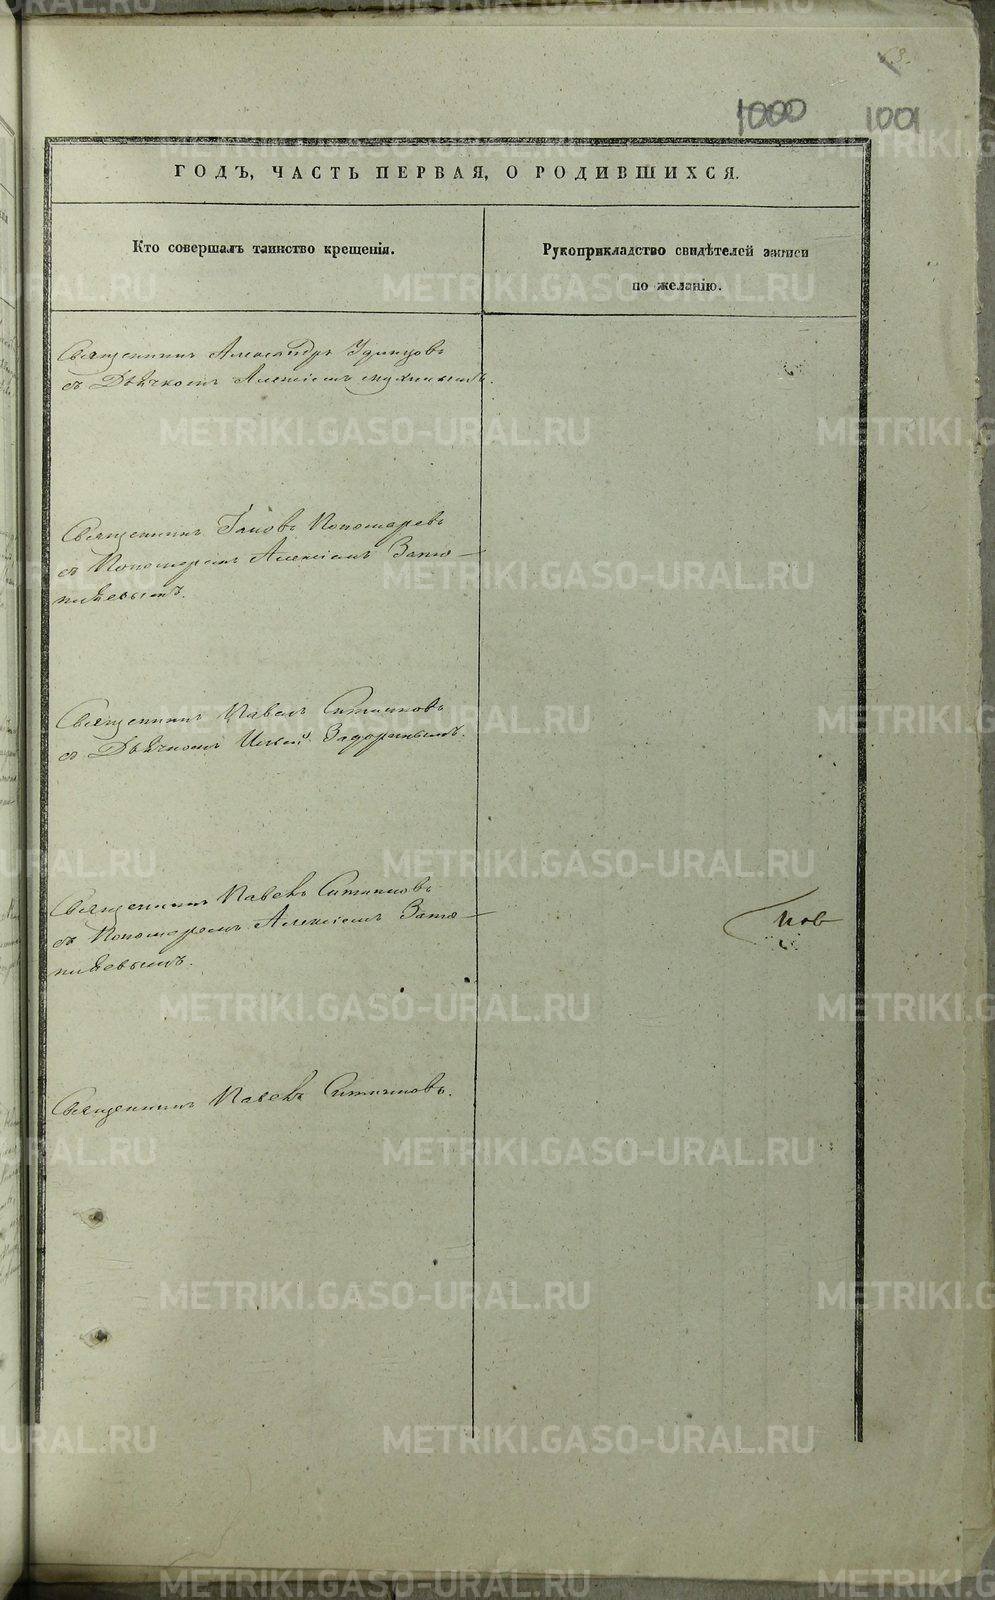 63.
1000 1001
ГОДЪ, ЧАСТЬ ПЕРВАЯ, О РОДИВШИХСЯ.
Кто совершалъ таинство крещенія.
Рукоприкладство свидѣтелей записи
по желанію.
Священникъ Александръ Удинцовъ
съ Дьячкомъ Алексіемъ
Священникъ Іаковъ Пономаревъ
съ Пономаремъ Алексіемъ Запо-
Священникъ Павелъ Ситниковъ
съ Дьячкомъ Ильей Задоринымъ.
Священникъ Павелъ Ситниковъ
съ Пономаремъ Алексіемъ
Священникъ Павелъ Ситниковъ.
нов
METRIKI.GASO-URAL.RU